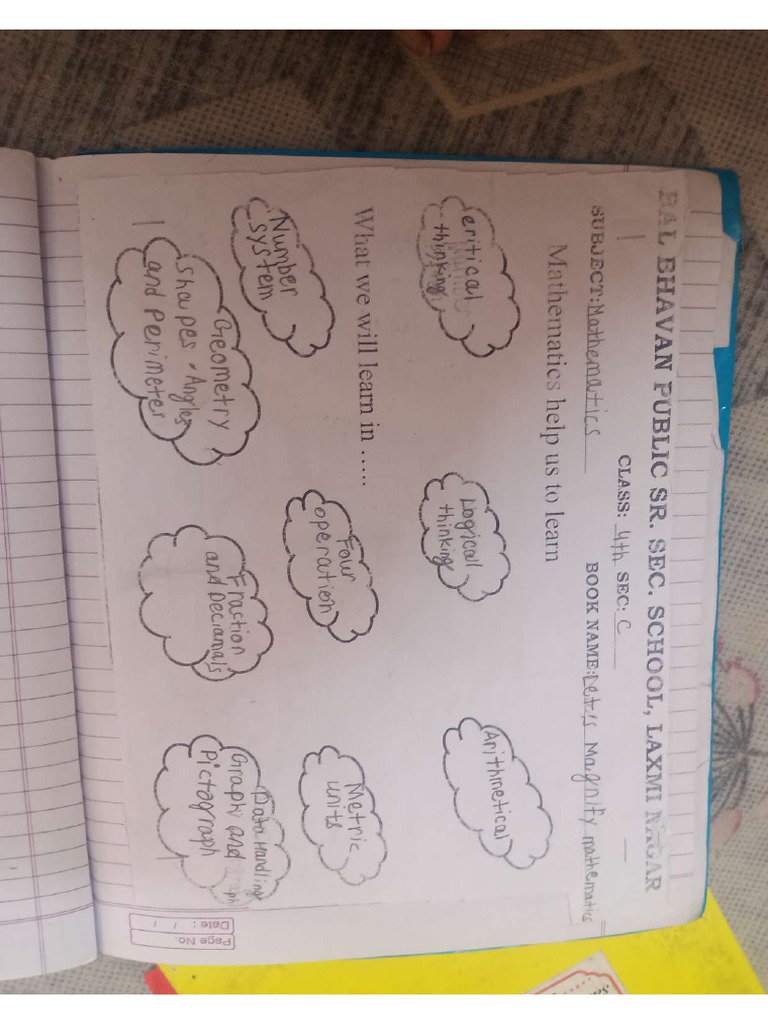 BAL BHAVAN PUBLIC SR. SEC. SCHOOL, LAXMI NAGAR
CLASS: 4th SEC: C
SUBJECT: Mathematics BOOK NAME: Let's Magnify mathematics
Mathematics help us to learn
critical
thinking
Logical
thinking
Arithmetical
What we will learn in .....
Number
system
Four
operation
Metric
units
Geometry
shapes, Angles
and perimeter
Fraction
and Deciamals
Data Handling
Graph and
Pictograph
Page No.
Date: / /